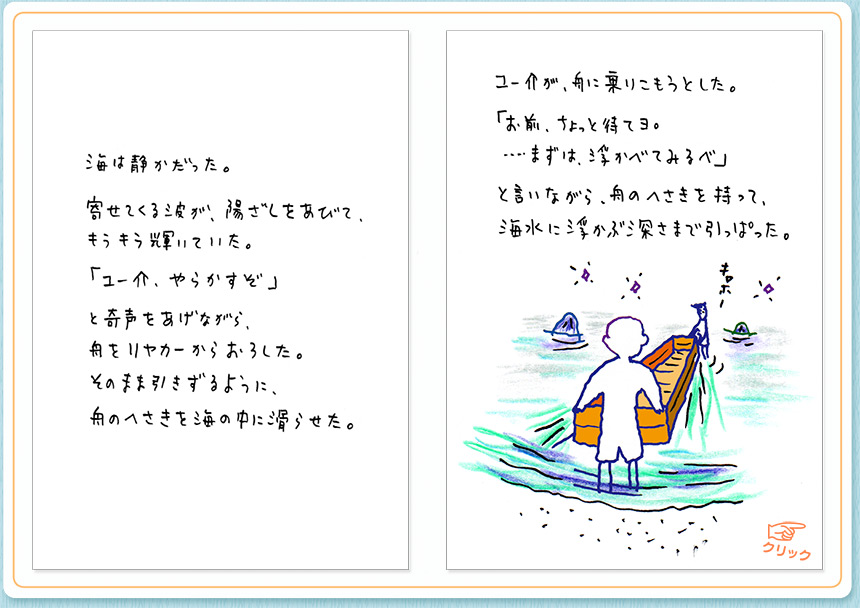 海は静かだった。
寄せてくる波が、陽ざしをあびて、
キラキラ輝いていた。
「ユー介、やらかすぞ」
と奇声をあげながら、
舟をリヤカーからおろした。
そのまま引きずるように、
舟のへさきを海の中に滑らせた。
ユー介が、舟に乗りこもうとした。
「お前、ちょっと待てヨ。
‥‥まずは、浮かべてみるべ」
と言いながら、舟のへさきを持って、
海水に浮かぶ深さまで引っぱった。
キロホー
クリック